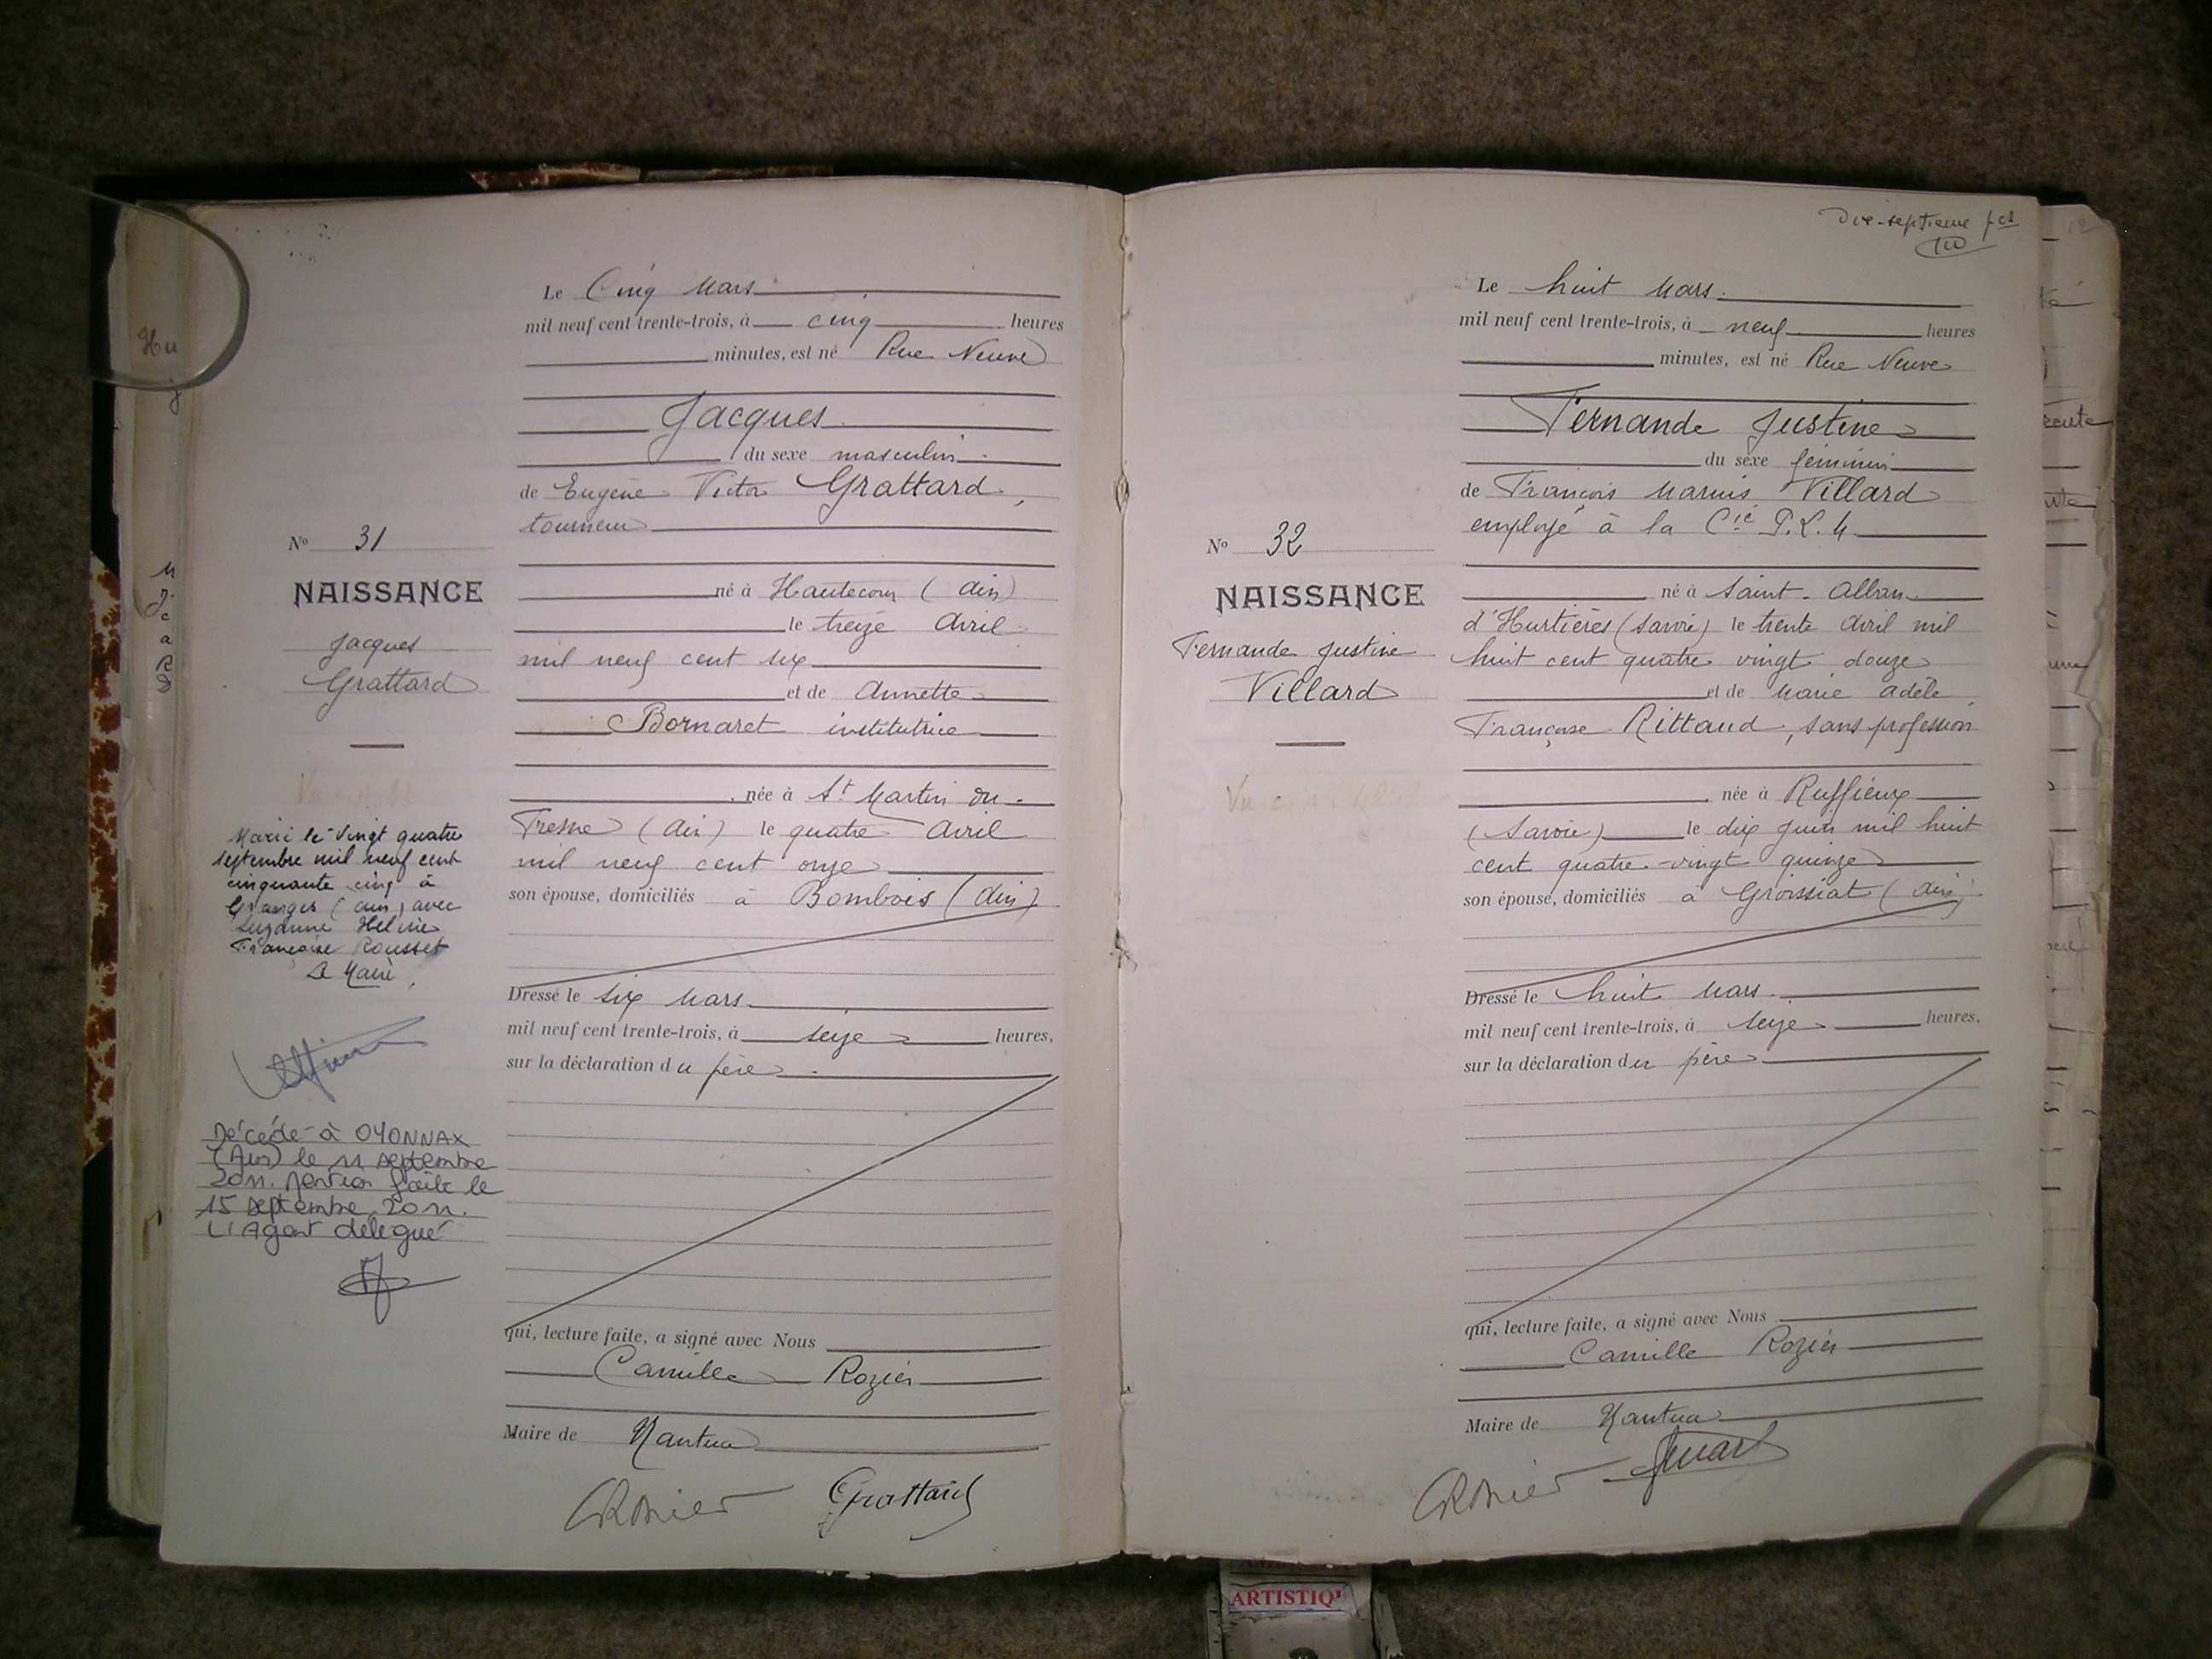 Le Cinq Mars
mil neuf cent trente-trois, à cinq heures
minutes, est né Rue Neuve
Jacques
du sexe masculin
de Eugène Victor Grattard,
tourneur
né à Hautecour (Ain)
le treize Avril
mil neuf cent six
et de Annette
Bornaret institutrice
née à St Martin du
Fresne (Ain) le quatre Avril
mil neuf cent onze
son épouse, domiciliés à Bombois (Ain)
Dressé le six Mars
mil neuf cent trente-trois, à seize heures,
sur la déclaration du père
qui, lecture faite, a signé avec Nous
Camille Rozier
Maire de Nantua
CRozier Grattard
No 31
NAISSANCE
Jacques
Grattard
Marié le vingt quatre
septembre mil neuf cent
cinquante cinq à
Granges (Ain) avec
Suzanne Hélène
Françoise Rousset
Le Maire,
Décédé à OYONNAX
(Ain) le 11 septembre
2011. Mention faite le
15 septembre 2011.
L'Agent délégué
Dix-septième fet
Le huit Mars.
mil neuf cent trente-trois, à neuf heures
minutes, est né Rue Neuve
Fernande Justine
du sexe féminin
de François Marius Villard
employé à la Cie P.L.M.
né à Saint-Alban
d'Hurtières (Savoie) le trente Avril mil
huit cent quatre vingt douze
et de Marie Adèle
Françoise Rittaud, sans profession
née à Ruffieux
(Savoie) le dix Juin mil huit
cent quatre-vingt quinze
son épouse, domiciliés à Groissiat (Ain)
Dressé le huit Mars.
mil neuf cent trente-trois, à seize heures,
sur la déclaration du père
qui, lecture faite, a signé avec Nous
Camille Rozier
Maire de Nantua
CRozier
No 32
NAISSANCE
Fernande Justine
Villard
ARTISTIQ